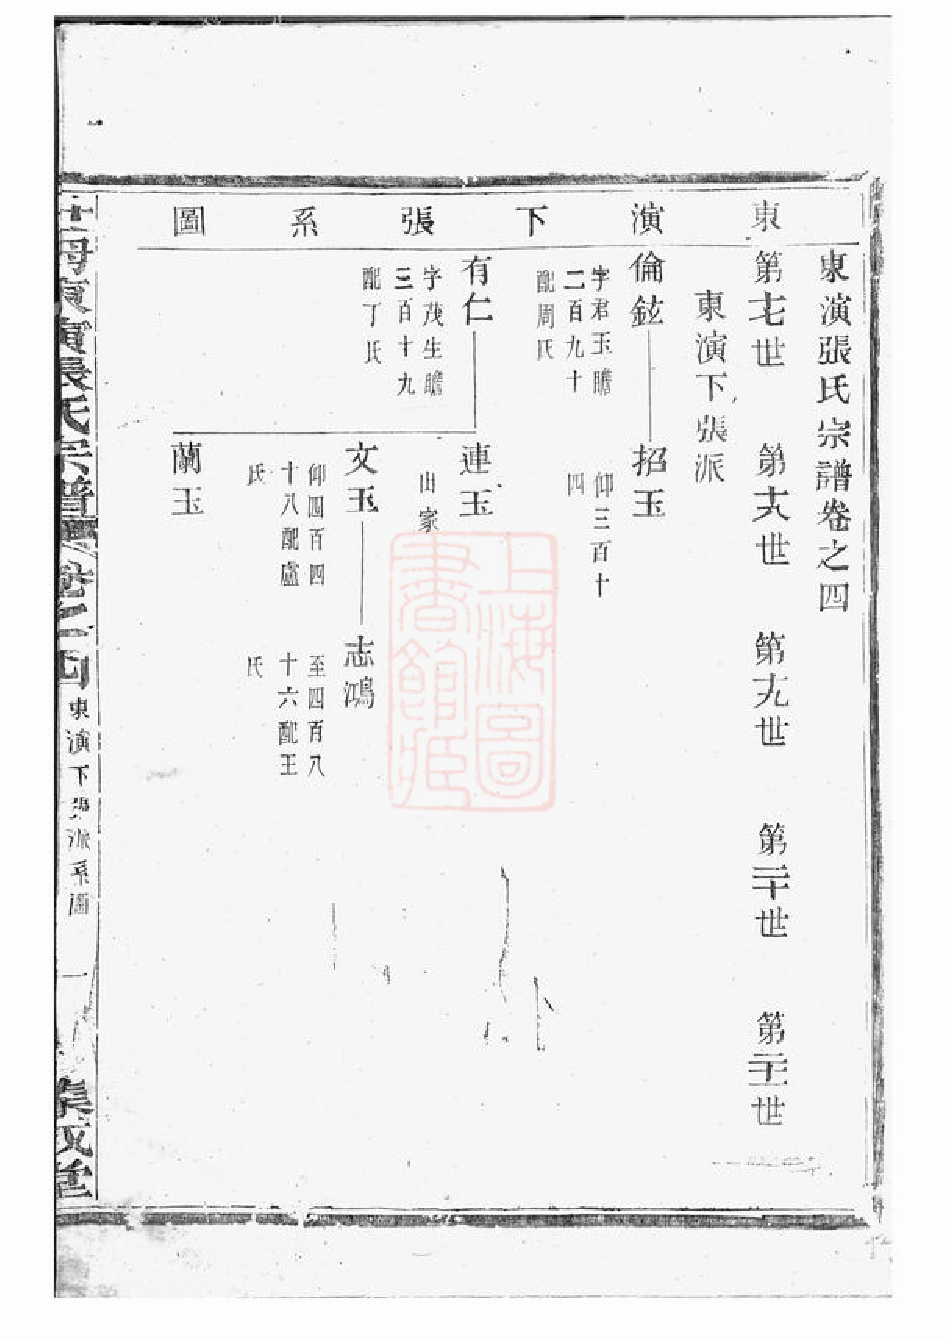 東演下張系圖
東演張氏宗譜卷之四
第七世 第大世 第九世 第二十世 第二十一世
東演下張派
倫鉉
字君玉瞻
二百九十
配周氏
招玉
仰三百十
四
有仁
字茂生瞻
三百十九
配丁氏
連玉
出家
文玉
仰四百四
十八配盧
氏
志鴻
至四百八
十六配王
氏
蘭玉
東演張氏宗譜 卷之四
東演下張派系圖
一
集成堂
上海圖書館藏